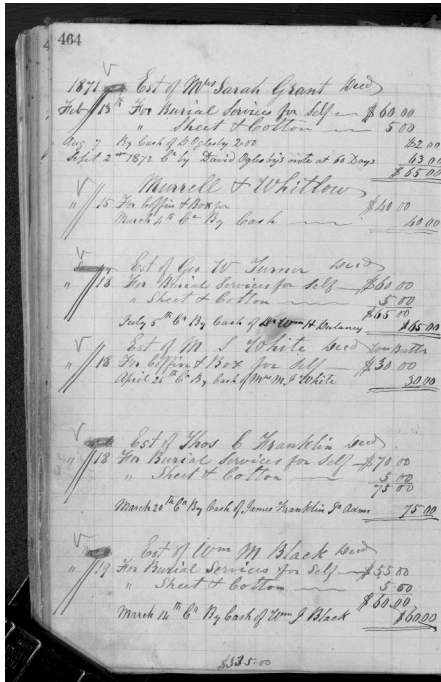 464
1871 Est of Mrs Sarah Grant Decd
Feby 13th For Burial Services for Self $60.00
" Sheet & Cotton 5.00
Aug 7 By Cash of D Oglesby 2.00
Sept 2nd 1872 Cr by David Oglesby's note at 60 Days 63.00
$65.00
Murrell & Whitlow
" 15 For Coffin & Box for $40.00
March 4th Cr By Cash 40.00
Est of Geo W Turner Decd
" 18 For Burial Services for Self $60.00
" Sheet & Cotton 5.00
$65.00
July 5th Cr By Cash of Wm H $65.00
Est of M S White Decd
" 18 For Coffin & Box for Self $30.00
April 25th Cr By Cash of Mrs M J White 30.00
Est of Thos C Franklin Decd
" 18 For Burial Services for Self $70.00
" Sheet & Cotton 5.00
75.00
March 20th Cr By Cash of James Franklin Jr Admr 75.00
Est of Wm M Black Decd
" 19 For Burial Services for Self $55.00
" Sheet & Cotton 5.00
$60.00
March 14th Cr By Cash of Wm J Black $60.00
$335.00